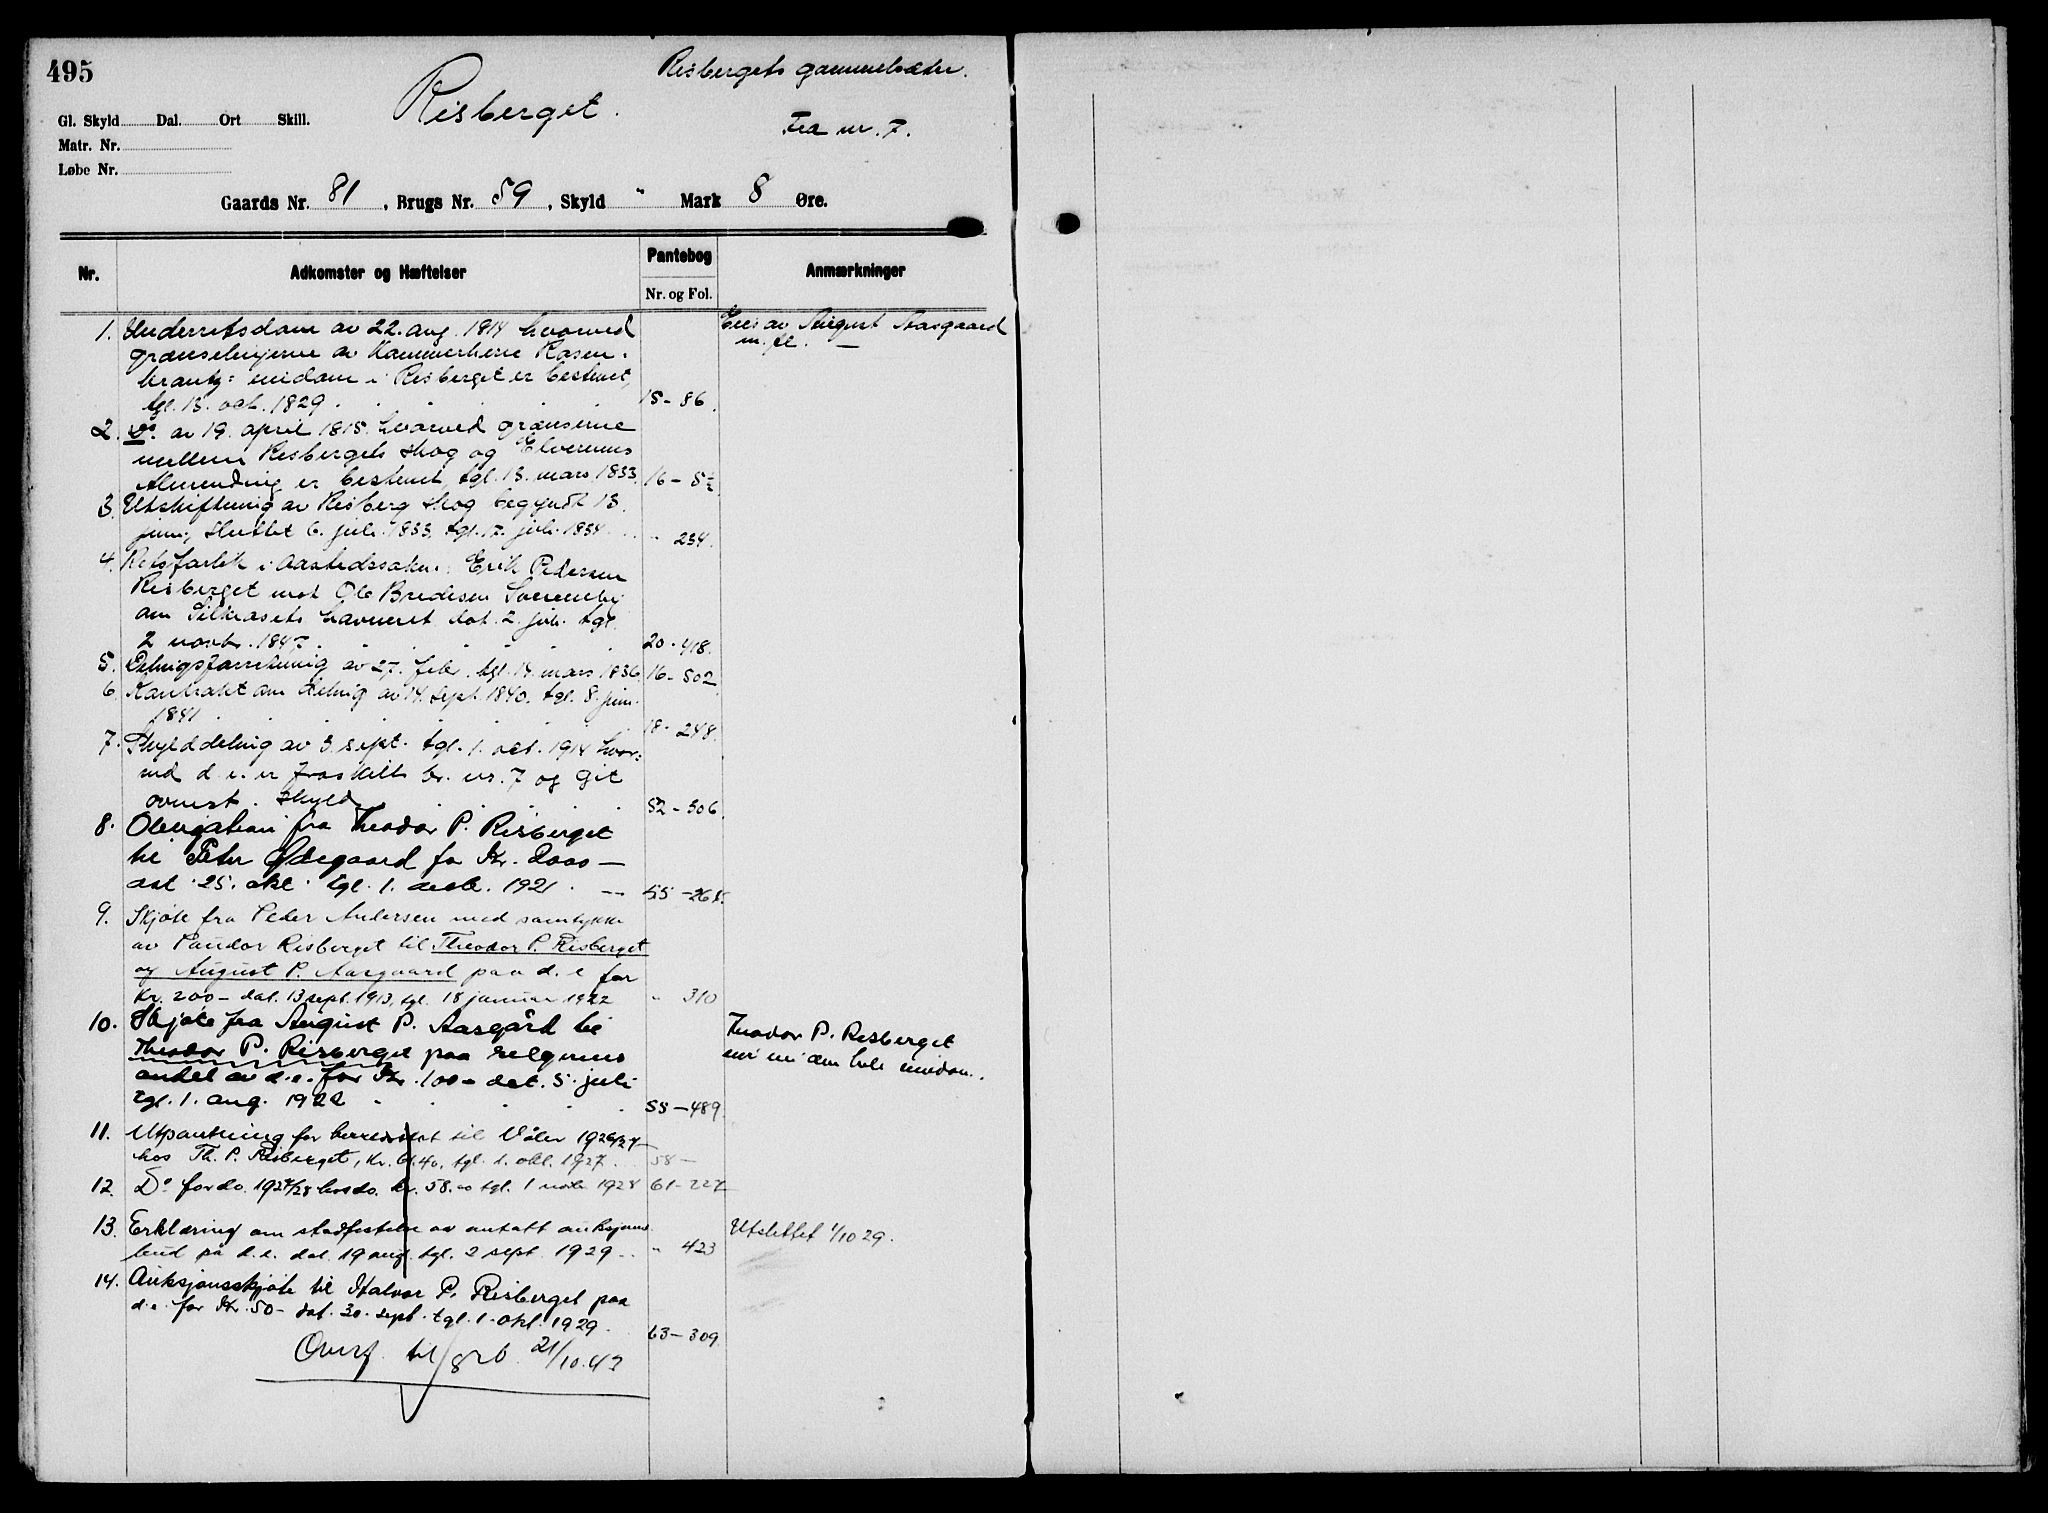 495
Risbergets gammelsæter.
Risberget.
Fra nr. 7.
Gl. Skyld Dal. Ort Skill.
Matr. Nr.
Løbe Nr.
Gaards Nr. 81, Brugs Nr. 59, Skyld " Mark 8 Øre.
Nr. Adkomster og Hæftelser Pantebog Anmærkninger
Nr. og Fol.
1. Underretsdom av 22. aug. 1814 hvorved Eies av August Aasgaard
grænselinjerne av Kammerherre Rosen- m. fl.
krantz' eiendom i Risberget er bestemt,
tgl. 13. oct. 1829. 15 - 86.
2. Do. av 19. april 1815. hvorved grænserne
mellem Risbergets skog og Elverums
Almending er bestemt, tgl. 13. mars 1833. 16 -
3. Utskiftning av Risberg skog begyndt 13.
juni, sluttet 6. juli 1833. tgl. 17. juli 1834. " 234.
4. Retsforlik i Aastedssaken: Erik Pedersen
Risberget mot Ole Bredesen
om havneret dat. 2. juli tgl.
2 novbr. 1847. 20 - 418.
5. Delingsforretning av 27. febr. tgl. 14. mars 1836. 16 - 502
6. Kontrakt om deling av 14. sept. 1840. tgl. 8. juni
1841. 18 - 248.
7. Skylddeling av 3. sept. tgl. 1. oct. 1914 hvor-
ved d. e. er fraskilt br. nr. 7 og git
ovennt. skyld. 52 - 506.
8. Obligation fra Theodor P. Risberget
til Peter Ødegaard for Kr. 2000 —
dat. 25. okt. tgl. 1. desb. 1921. 55 - 265.
9. Skjøte fra Peder Andersen med samtykke
av Pauder Risberget til Theodor P. Risberget
og August P. Aasgaard paa d. e for
Kr. 200 - dat. 13 sept. 1913, tgl. 18 januar 1922 " 310
10. Skjøte fra August P. Aasgård til Theodor P. Risberget
Theodor P. Risberget paa selgerens eier nu den hele eiendom.
andel av d. e. for Kr. 100 - dat. 5. juli
tgl. 1. aug. 1922 55 - 489.
11. Utpantning for herredskat til Våler 1926/27
hos Th. P. Risberget, Kr. 61.40, tgl. 1. okt. 1927. 58 -
12. Do for do. 1927/28 hos do. kr. 58. tgl. 1 novb. 1928 61 - 227
13. Erklæring om stadfestelse av antatt auksjons- Utslettet 1/10 29.
bud på d. e. dat. 19 aug. tgl. 2 sept. 1929. " 423
14. Auksjonsskjøte til Halvor P. Risberget paa
d. e. for Kr. 50 - dat. 30. sept. tgl. 1. okt. 1929. 63 - 309.
Overf. til grb. 21/10.43